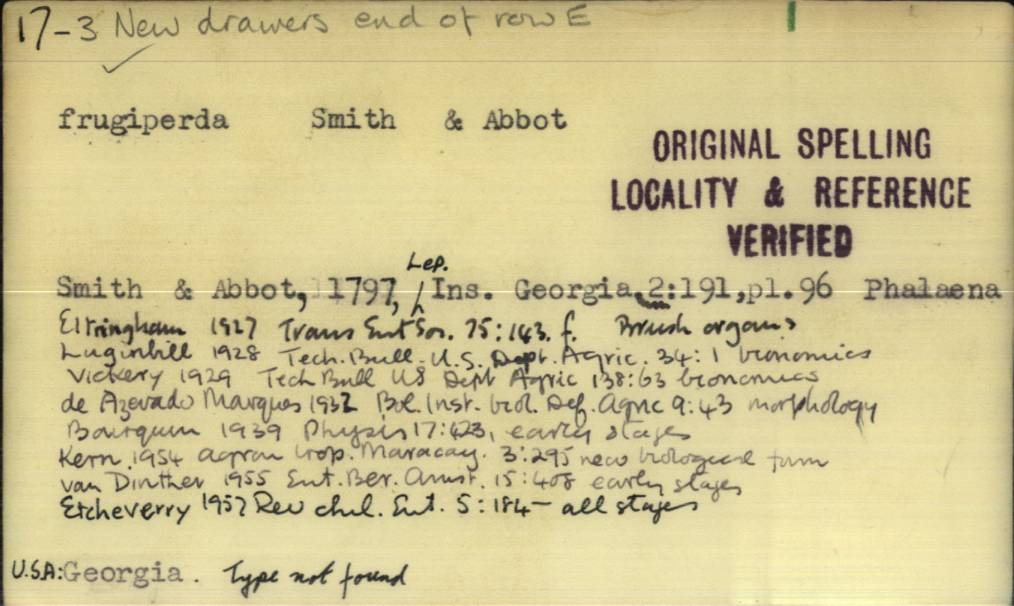 17-3 New drawers end of row E
frugiperda Smith & Abbot
ORIGINAL SPELLING
LOCALITY & REFERENCE
VERIFIED
Lep.
Smith & Abbot, 1797, Ins. Georgia, 2:191,pl.96 Phalaena
Eltringham 1927 Trans Ent Soc. 75:143. f. Brush organs
Luginbill 1928 Tech. Bull. U.S. Dept. Agric. 34: 1 bionomics
Vickery 1929 Tech Bull US Dept Agric 138:63 bionomics
de Azevado Marques 1932 Bol. Inst. biol. Def. Agric 9:43 morphology
Bourquin 1939 Physis 17:423, early stages
Kern 1954 Agron trop. Maracay. 3:295 new biological form
van Dinther 1955 Ent. Ber. Amst. 15:408 early stages
Etcheverry 1957 Rev chil. Ent. 5:184- all stages
U.S.A: Georgia. Type not found